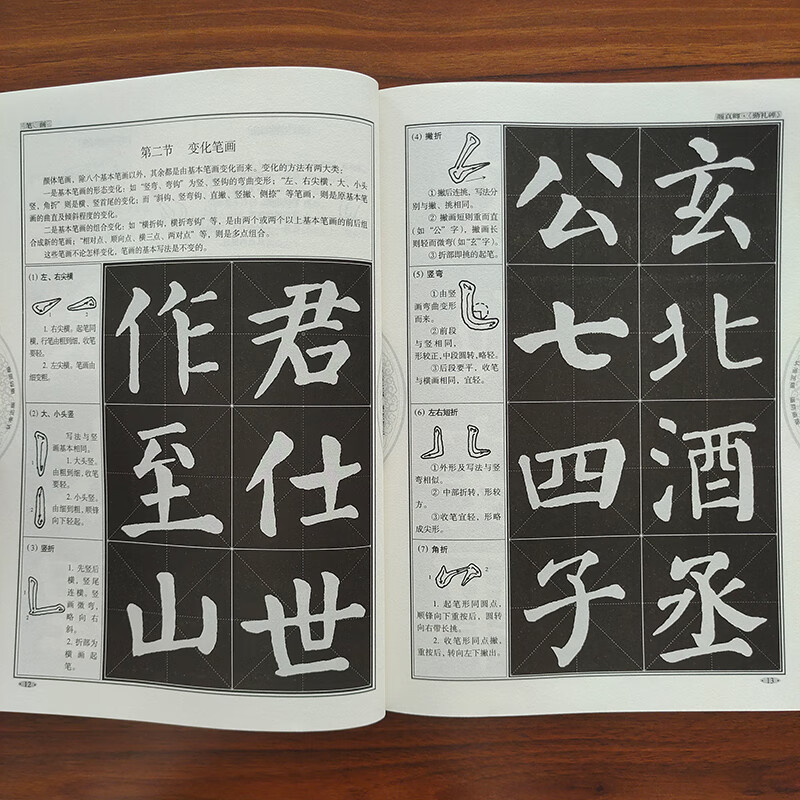 笔 画
第二节 变化笔画
颜体笔画，除八个基本笔画以外，其余都是由基本笔画变化而来。变化的方法有两大类：
一是基本笔画的形态变化：如“竖弯、弯钩”为竖、竖钩的弯曲变形；“左、右尖横，大、小头
竖，角折”则是横、竖首尾的变化；而“斜钩、竖弯钩、直撇、竖撇、侧捺”等笔画，则是原基本笔
画的曲直及倾斜程度的变化。
二是基本笔画的组合变化：如“横折钩，横折弯钩”等，是由两个或两个以上基本笔画的前后组
合成新的笔画；“相对点、顺向点、横三点、两对点”等，则是多点组合。
这些笔画不论怎样变化，笔画的基本写法是不变的。
(1) 左、右尖横
1 2
1. 右尖横。起笔同
横，行笔由粗到细，收笔
要轻。
2. 左尖横。笔画由
细变粗。
作 君
(2) 大、小头竖
1
2
写法与竖
画基本相同。
1. 大头竖。
由粗到细，收笔
要轻。
2. 小头竖。
由细到粗，顺锋
向下轻起。
至 仕
(3) 竖折
1
2
1. 先竖后
横，竖尾
连横。竖
画微弯，
略向右
斜。
2. 折部为
横画起
笔。
山 世
12
颜真卿·《勤礼碑》
(4) 撇折
①撇后连挑，写法分
别与撇、挑相同。
②撇画短则重而直
(如“公”字)，撇画长
则轻而微弯(如“玄”字)。
③折部即挑的起笔。
公 玄
(5) 竖弯
①由竖
画弯曲变形
而来。
②前段
与竖相同，
形较正，中段圆转，略轻。
③后段要平，收笔
与横画相同，宜轻。
七 北
(6) 左右短折
①外形及写法与竖
弯相似。
②中部折转，形较
方。
③收笔宜轻，形略
成尖形。
四 酒
(7) 角折
1 2
1. 起笔形同圆点，
顺锋向下重按后，圆转
向右带长挑。
2. 收笔形同点撇，
重按后，转向左下撇出。
子 丞
13